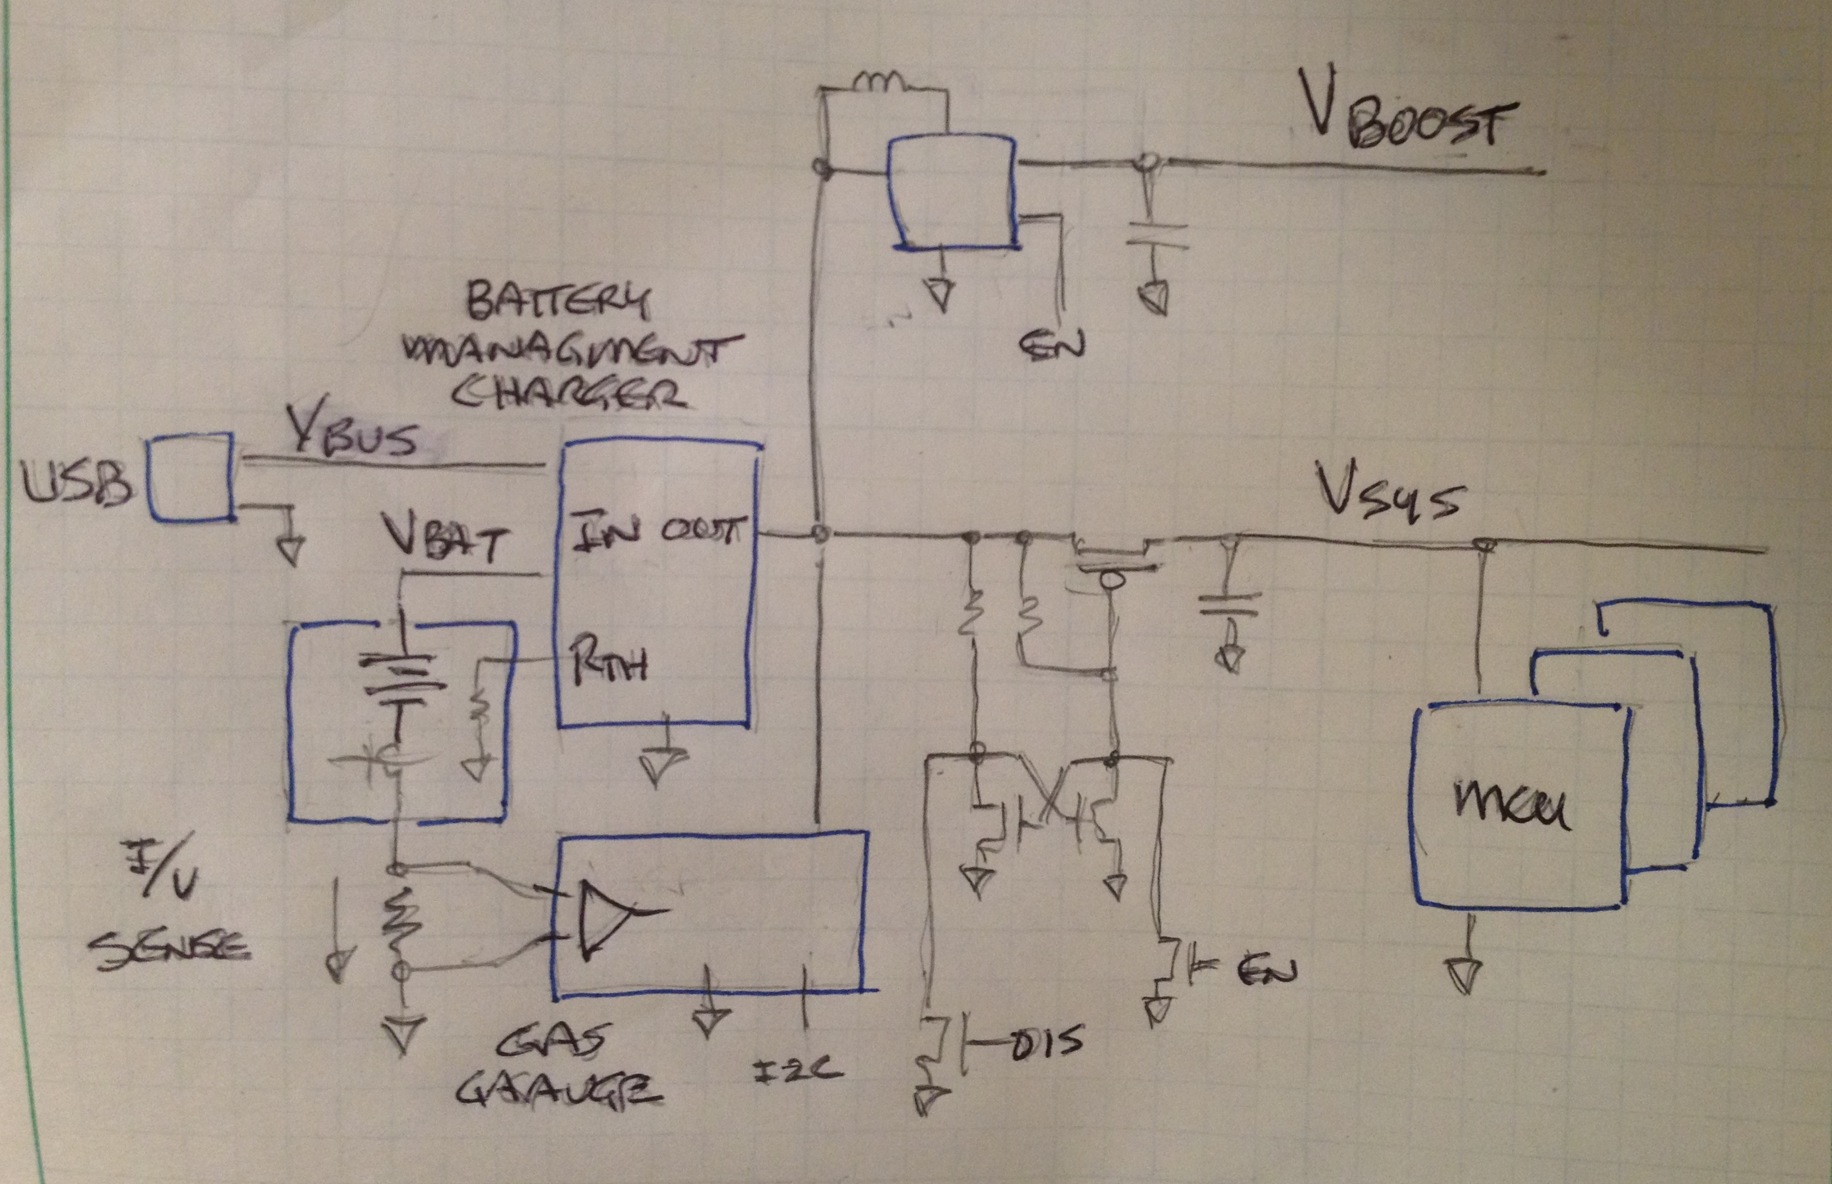 VBOOST
EN
BATTERY
MANAGMENT
CHARGER
VBUS
USB
VBAT
IN OUT
RTH
VSYS
MCU
I/V
SENSE
EN
DIS
GAS
GAAUGE
I2C